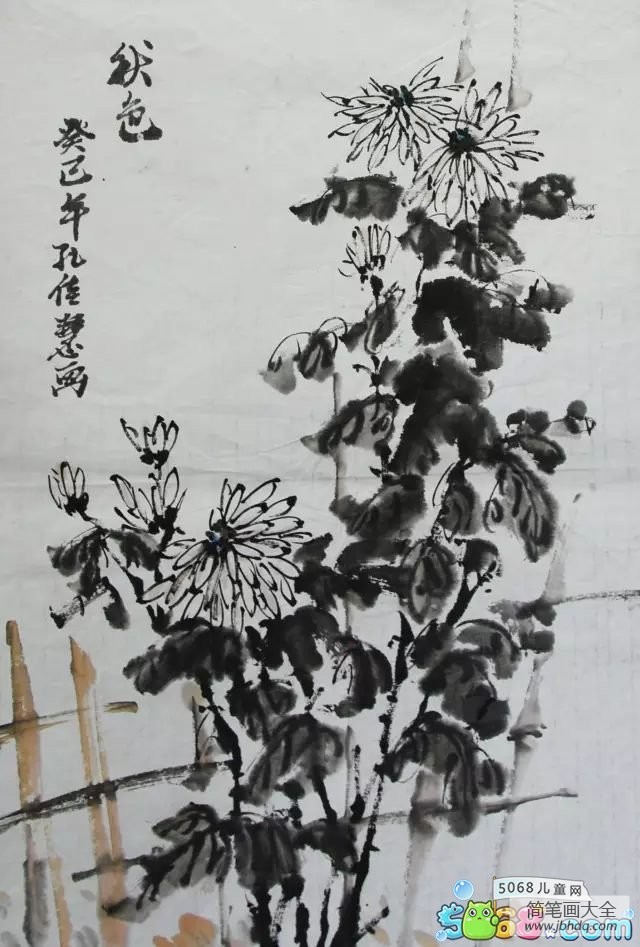 秋色
癸巳年孔佳慧画
5068儿童网
5068.com
简笔画大全
www.jbhdq.com